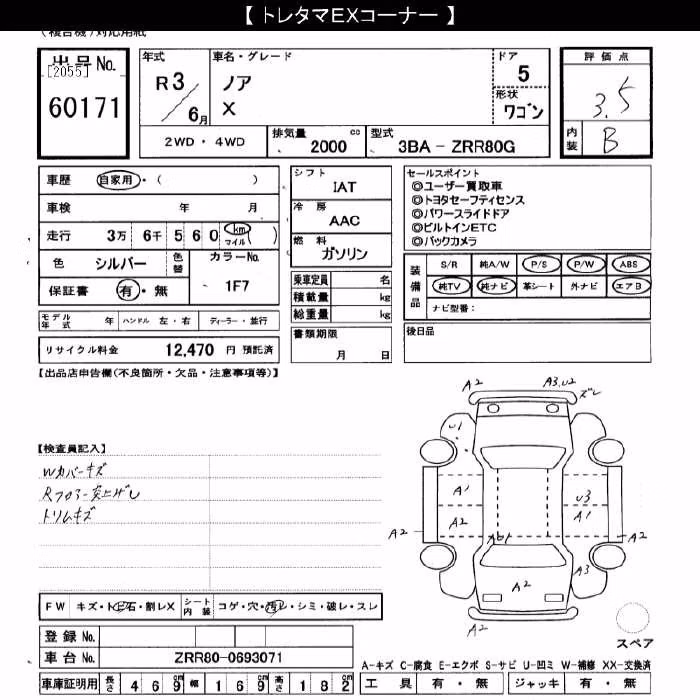 【 トレタマEXコーナー 】
出品No.
[2055]
60171
年式
R3/6月
車名・グレード
ノア
X
ドア
5
形状
ワゴン
評価点
3.5
内装
B
2WD・4WD
排気量
2000 cc
型式
3BA - ZRR80G
車歴 自家用・( )
車検 年 月
走行 3万 6千 5 6 0 km マイル ( )
色 シルバー 色替 カラーNo.
1F7
保証書 有・無
シフト
IAT
冷房
AAC
燃料
ガソリン
乗車定員 名
積載量 kg
総重量 kg
書類期限
月 日
セールスポイント
◎ユーザー買取車
◎トヨタセーフティセンス
◎パワースライドドア
◎ビルトインETC
◎バックカメラ
装備品
S/R 純A/W P/S P/W ABS
純TV 純ナビ 革シート 外ナビ エアB
ナビ型番:
後日品
モデル年式 年 ハンドル 左・右 ディーラー・並行
リサイクル料金 12,470 円 預託済
【出品店申告欄(不良箇所・欠品・注意事項等)】
【検査員記入】
Wカバーキズ
Rフロアー突上げし
トリムキズ
A2
A3,U2
ズレ
U1
A1
U3
A2
A1
A2
A2
A3
A2
A2
スペア
FW キズ・トビ石・割レX シート内装 コゲ・穴・汚レ・シミ・破レ・スレ
登録 No.
車台 No. ZRR80-0693071
A-キズ C-腐食 E-エクボ S-サビ U-凹ミ W-補修 XX-交換済
車庫証明用 長さ 4 6 9 cm 幅 1 6 9 cm 高さ 1 8 2 cm
工具 有・無 ジャッキ 有・無